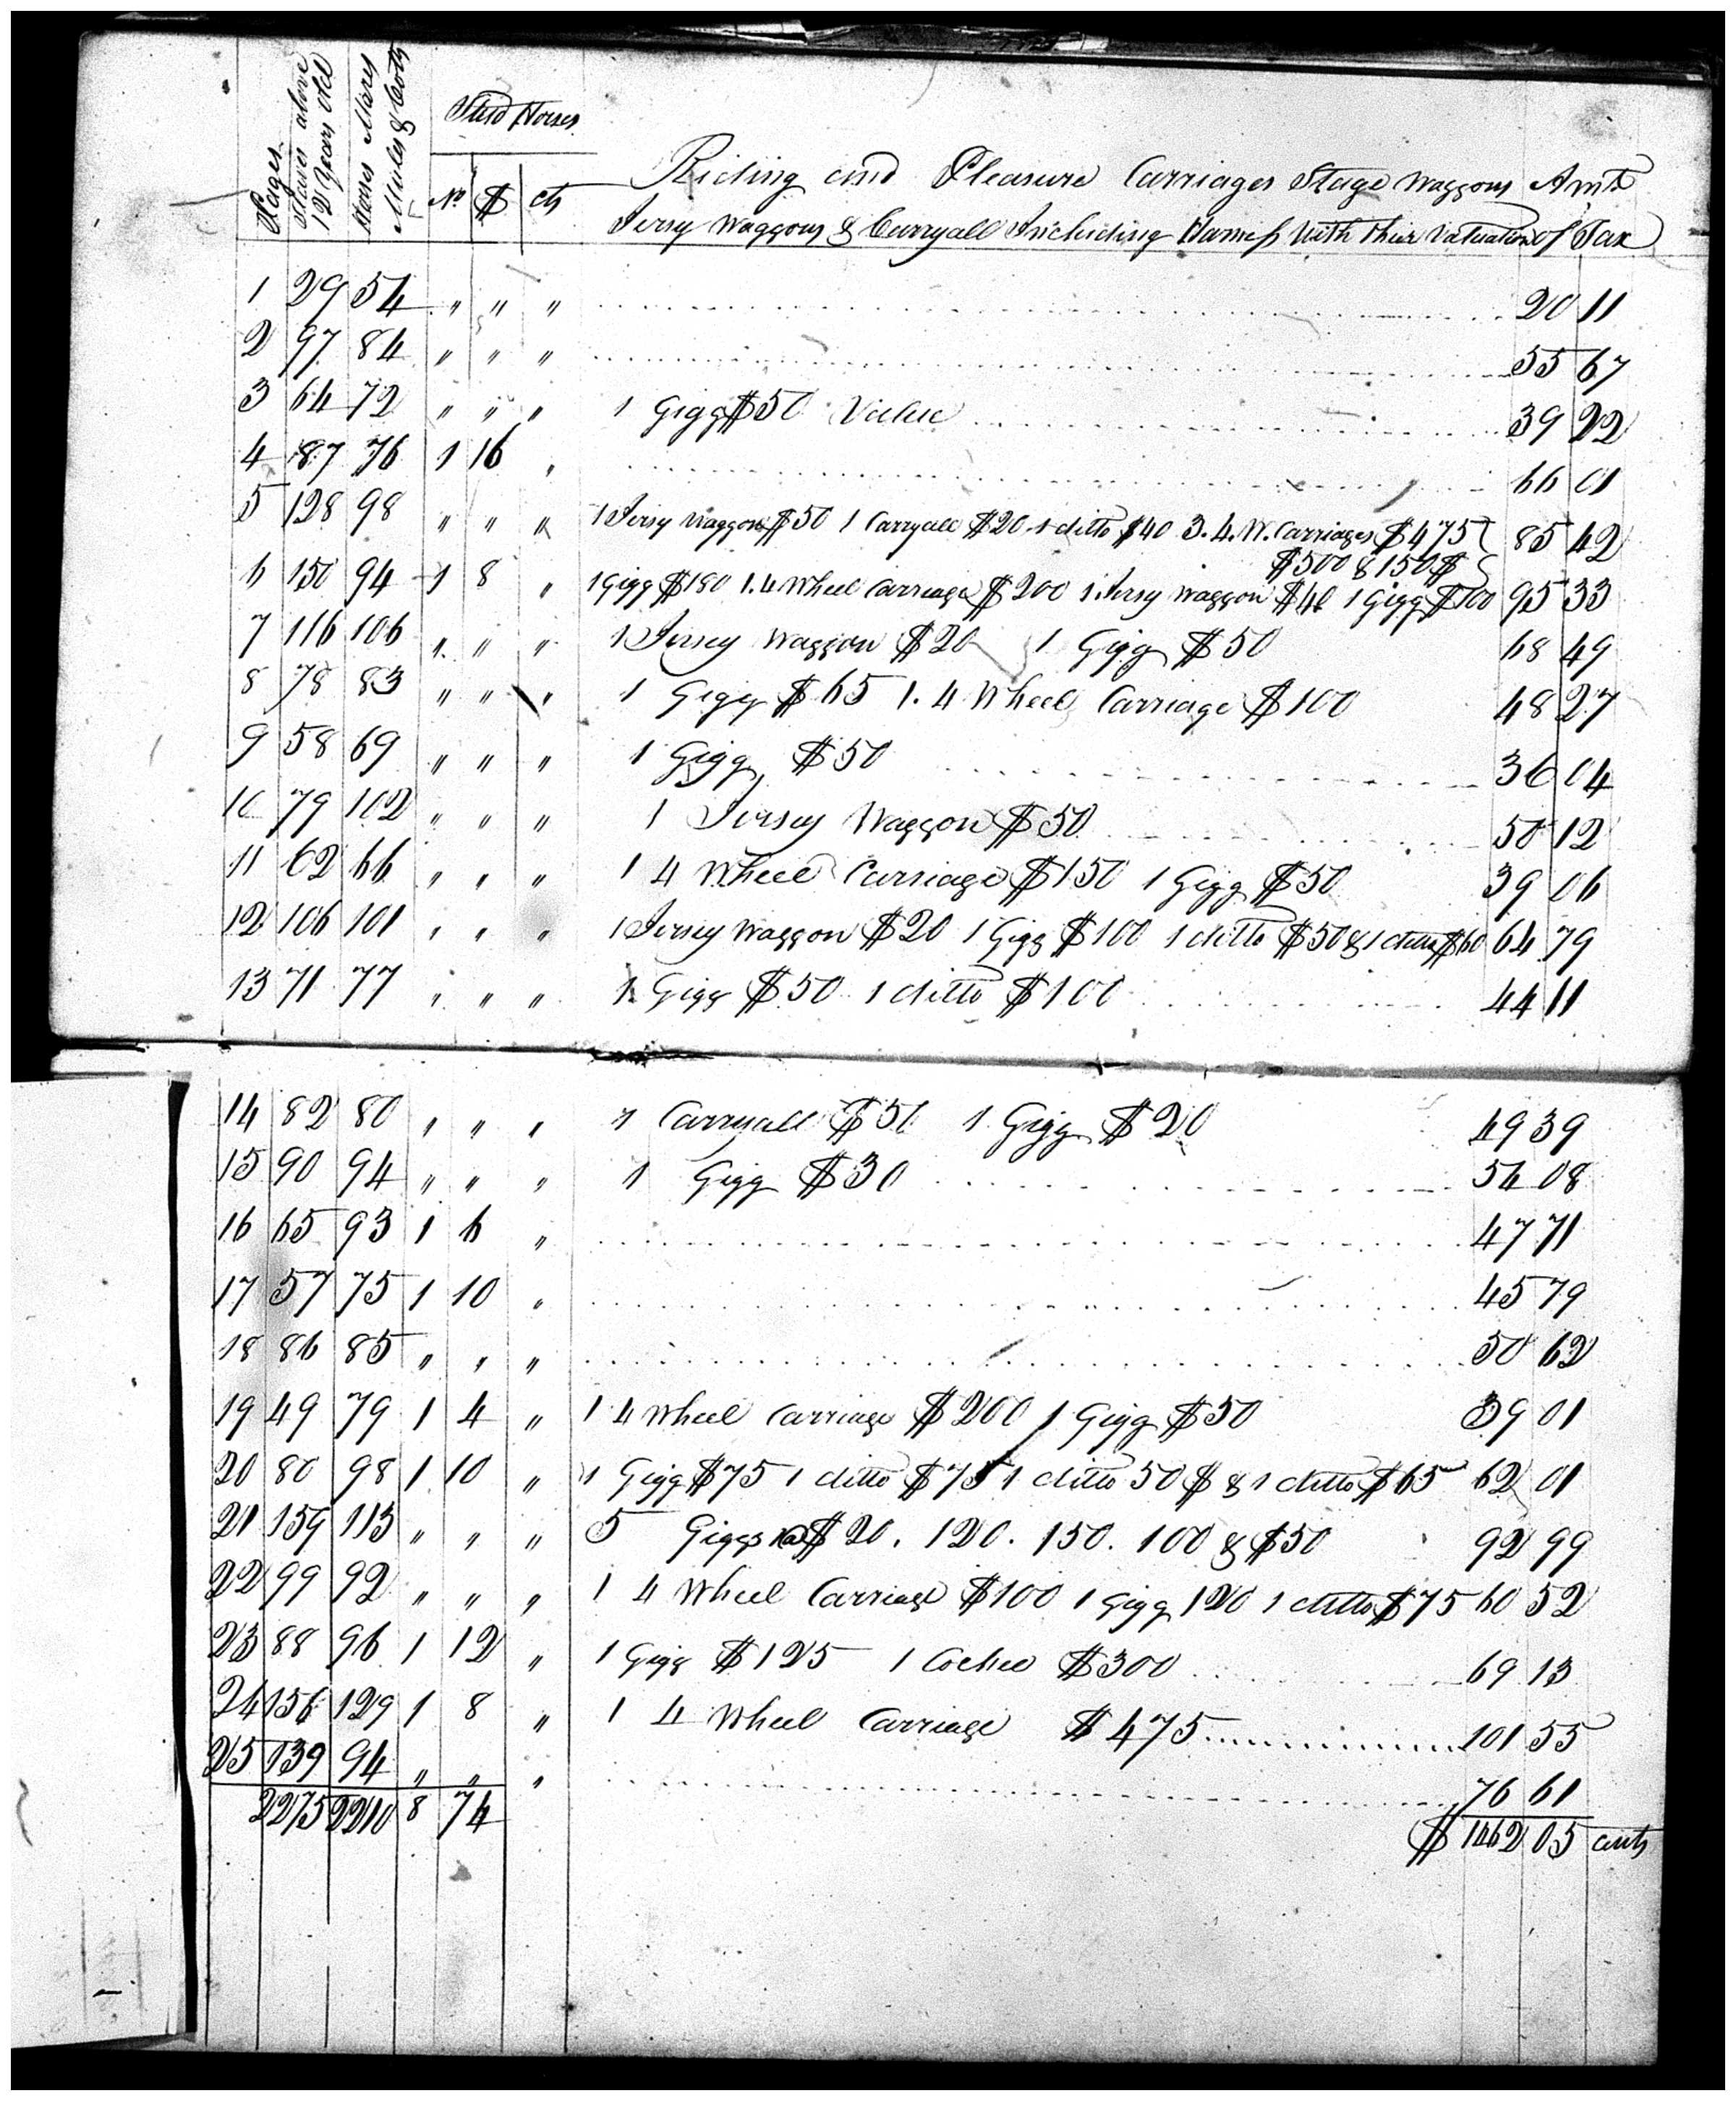 Pages
Slaves above
12 Years old
Horses Mares
Mules & Colts
Stud Horses
No $ cts
Riding and Pleasure Carriages Stage Waggons Amt
Jersy Waggons & Carryall Including Harness With their Valuation of Tax
1 29 54 " " " 20 11
2 97 84 " " " 55 67
3 64 72 " " " 1 Gigg $50 Value 39 22
4 87 76 1 16 " 66 01
5 128 98 " " " 1 Jersy Waggon $50 1 Carryall $20 1 ditto $40 3. 4. W. Carriages $475 85 42
$500 & 150$
6 150 94 1 8 " 1 Gigg $180 1. 4 Wheel Carriage $200 1 Jersy Waggon $40 1 Gigg $100 95 33
7 116 106 " " " 1 Jersey Waggon $20 1 Gigg $50 68 49
8 78 83 " " " 1 Gigg $65 1. 4 Wheel Carriage $100 48 27
9 58 69 " " " 1 Gigg $50 36 04
10 79 102 " " " 1 Jersey Waggon $50 50 12
11 62 66 " " " 1 4 Wheel Carriage $150 1 Gigg $50 39 06
12 106 101 " " " 1 Jersey Waggon $20 1 Gigg $100 1 ditto $50 & 1 ditto $60 64 79
13 71 77 " " " 1 Gigg $50 1 ditto $100 44 11
14 82 80 " " " 1 Carryall $50 1 Gigg $20 49 39
15 90 94 " " " 1 Gigg $30 54 08
16 65 93 1 6 " 47 71
17 57 75 1 10 " 45 79
18 86 85 " " " 50 62
19 49 79 1 4 " 1 4 Wheel Carriage $200 1 Gigg $50 39 01
20 80 98 1 10 " 1 Gigg $75 1 ditto $75 1 ditto 50$ & 1 ditto $65 62 01
21 159 113 " " " 5 Giggs @ $20. 120. 150. 100 & $50 92 99
22 99 92 " " " 1 4 Wheel Carriage $100 1 Gigg 120 1 ditto $75 60 52
23 88 96 1 12 " 1 Gigg $125 1 Cochee $300 69 13
24 156 129 1 8 " 1 4 Wheel Carriage $475 101 55
25 139 94 " " " 76 61
2275 2210 8 74 $ 1462 05 cents